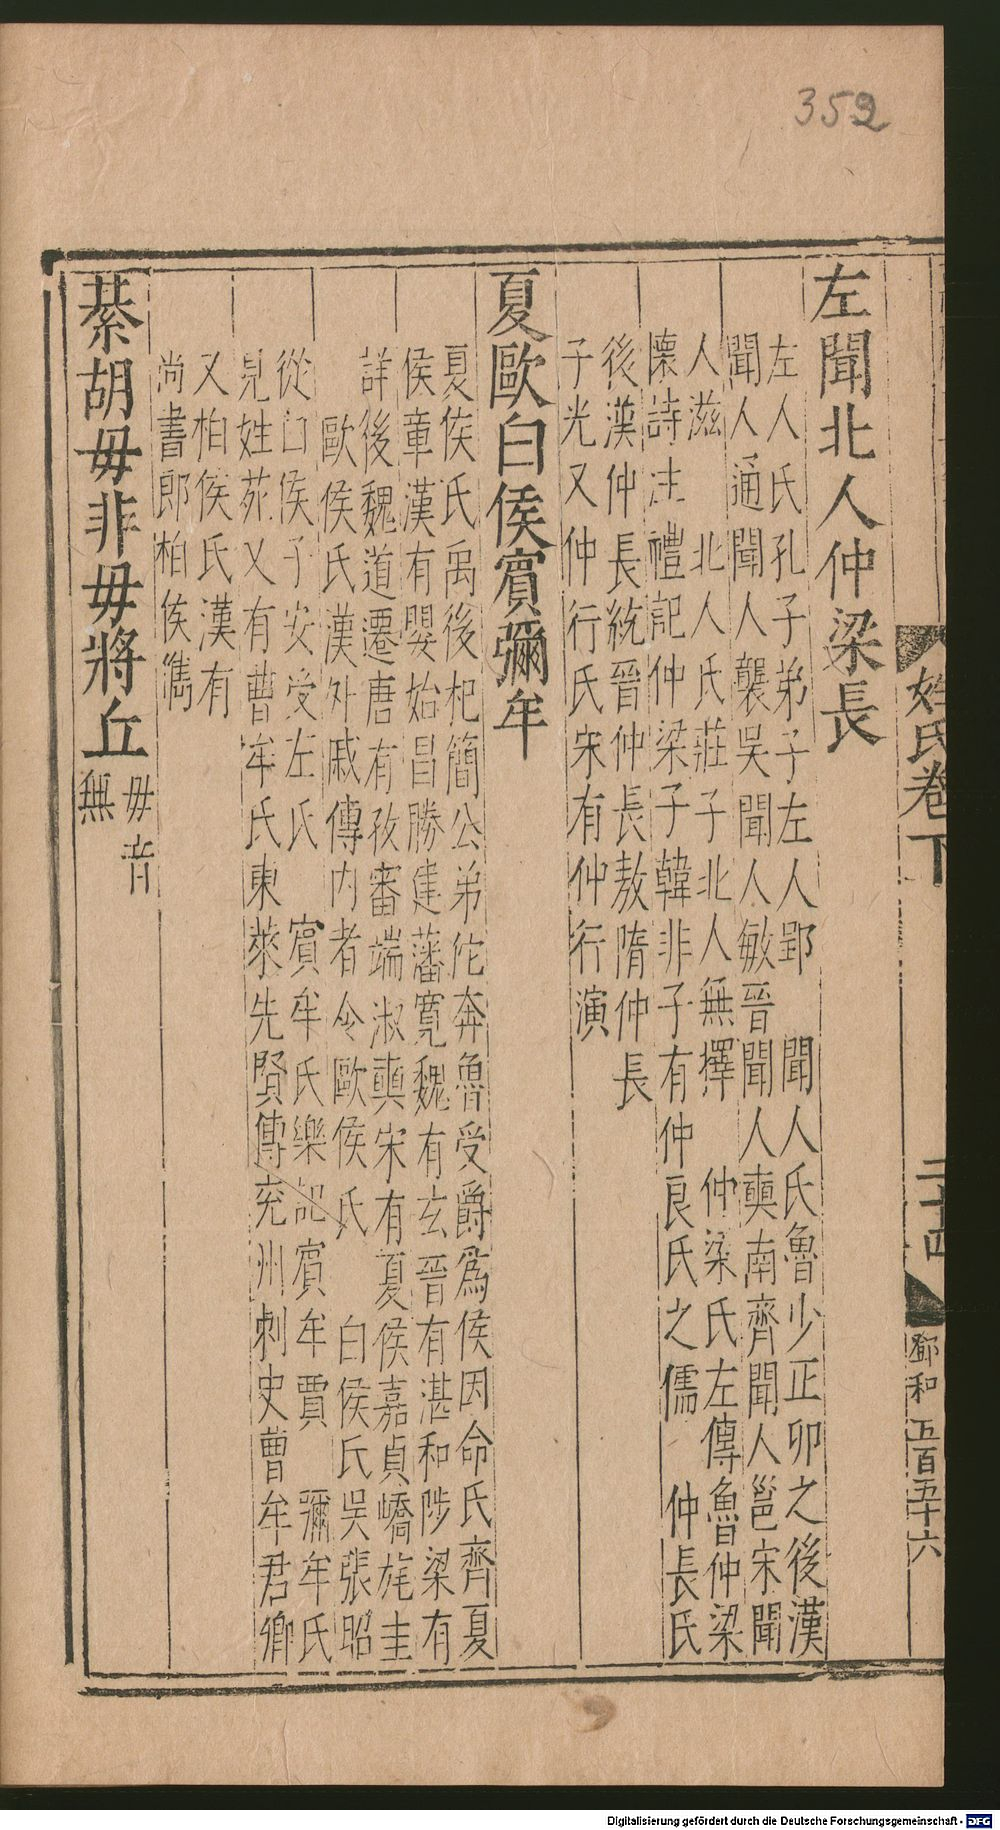 352
姓氏卷下
二十四
鄧和
五百五十六
左聞北人仲梁長
左人氏孔子弟子左人郢 聞人氏魯少正卯之後漢
聞人通聞人襲吳聞人敏晉聞人奭南齊聞人邕宋聞
人滋 北人氏莊子北人無擇 仲梁氏左傳魯仲梁
懷詩注禮記仲梁子韓非子有仲良氏之儒 仲長氏
後漢仲長統晉仲長敖隋仲長
子光又仲行氏宋有仲行演
夏歐白侯賓彌牟
夏侯氏禹後杞簡公弟佗奔魯受爵為侯因命氏齊夏
侯章漢有嬰始昌勝建藩寬魏有玄晉有湛和陟梁有
詳後魏道遷唐有孜審端淑奭宋有夏侯嘉貞嶠旄圭
歐侯氏漢外戚傳内者令歐侯氏 白侯氏吳張昭
從白侯子安受左氏 賓牟氏樂記賓牟賈 彌牟氏
見姓苑又有曹牟氏東萊先賢傳兖州刺史曹牟君卿
又柏侯氏漢有
尚書郎柏侯雋
綦胡毋非毋將丘
毋音
無
Digitalisierung gefördert durch die Deutsche Forschungsgemeinschaft - DFG